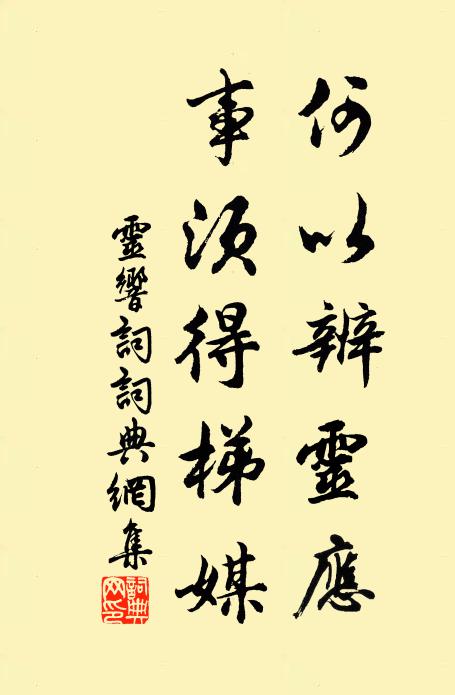 何以辨靈應
事須得梯媒
靈響詞詞典網集
詞典网印